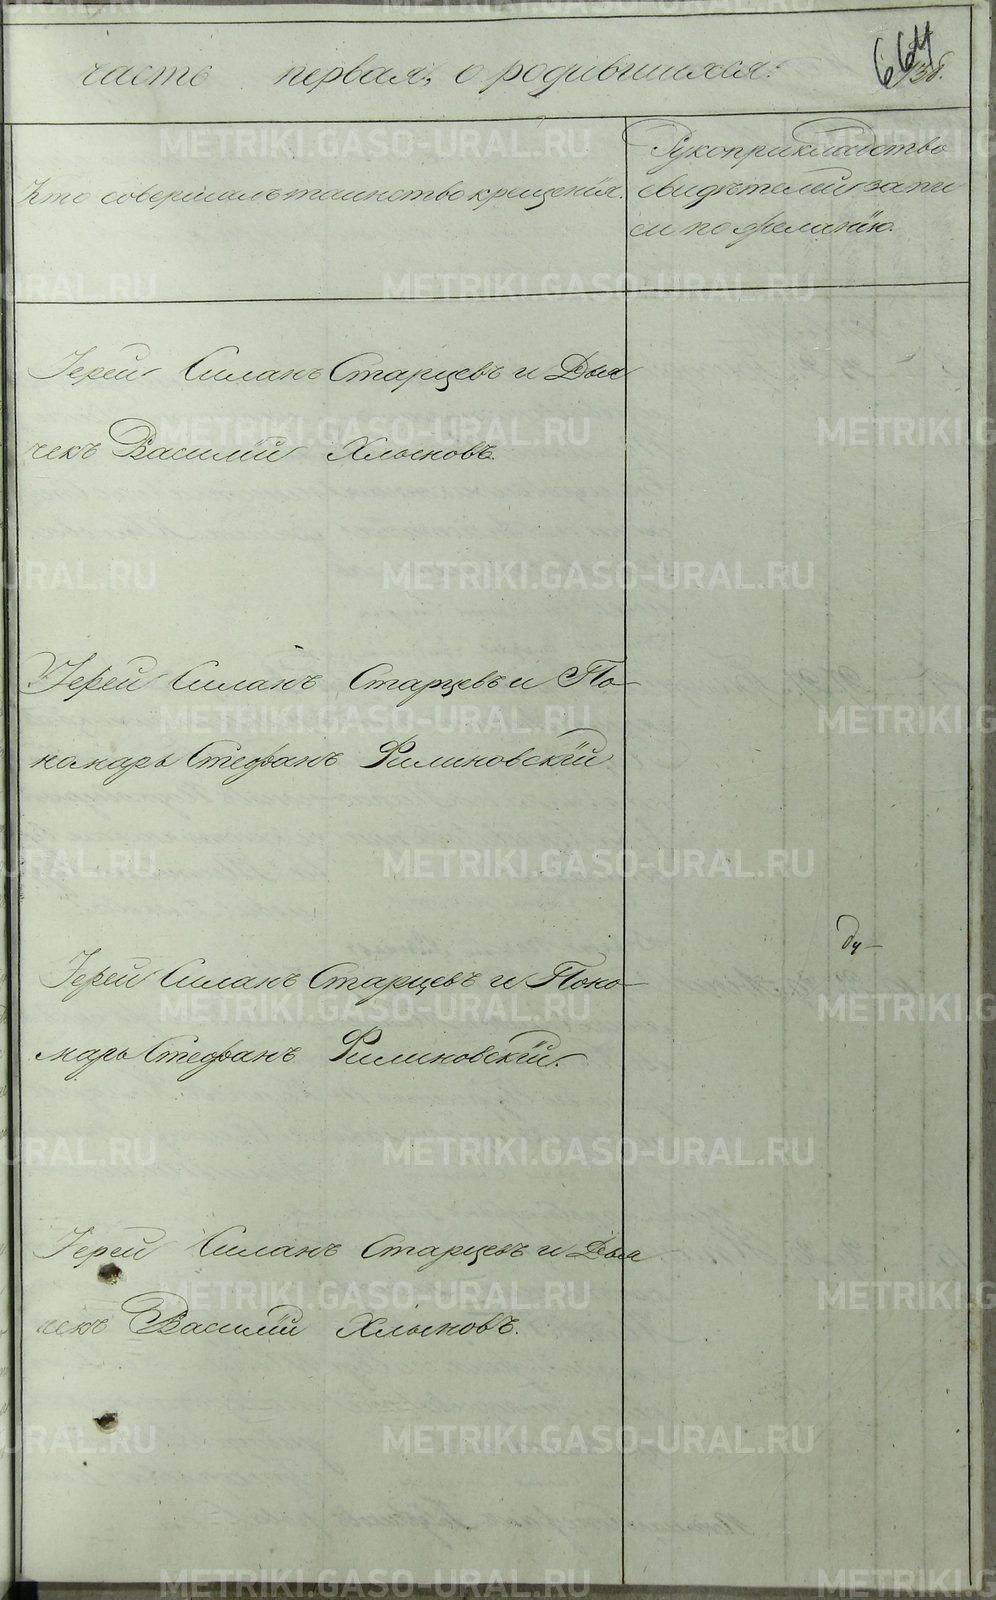 664
часть первая, о родившихся.
Кто совершалъ таинство крещенія.
Рукоприкладство
свидѣтелей запи
си по желанію.
Іерей Силанъ Старцевъ и Дья
чекъ Василій Хлыновъ.
Іерей Силанъ Старцевъ и По
номарь Стефанъ Филиновскій
Іерей Силанъ Старцевъ и Поно
марь Стефанъ Филиновскій.
Іерей Силанъ Старцевъ и Дья
чекъ Василій Хлыновъ.
METRIKI.GASO-URAL.RU